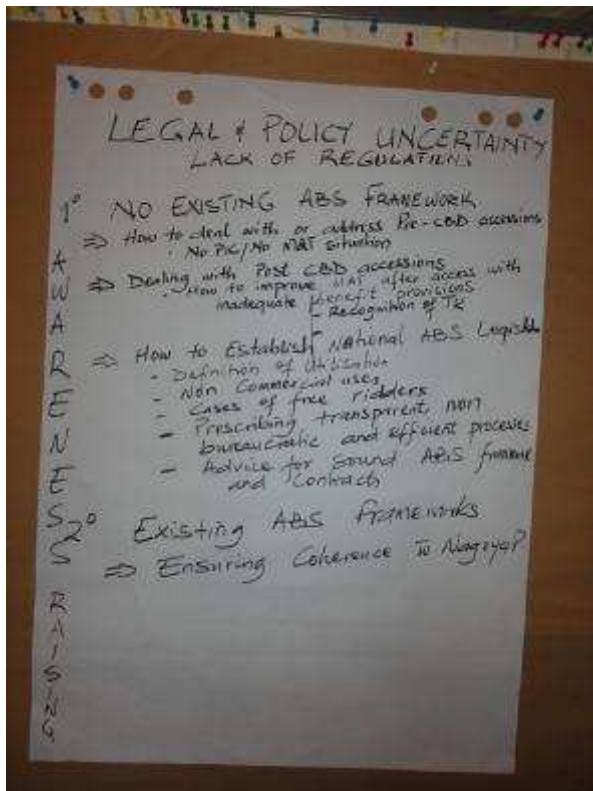 LEGAL & POLICY UNCERTAINTY
LACK OF REGULATIONS
1° NO EXISTING ABS FRAMEWORK
⇒ How to deal with or address Pre-CBD accessions
· No PIC/No MAT situation
⇒ Dealing with Post CBD accessions
- How to improve MAT after access with
inadequate benefit provisions
- Recognition of TK
⇒ How to Establish National ABS Legisltn
- Definition of Utilisation
- Non Commercial uses
- Cases of free ridders
- Prescribing transparent, non
bureaucratic and efficient processes
- Advice for Sound ABS framework
and Contracts
2° Existing ABS frameworks
⇒ Ensuring Coherence To Nagoya P
AWARENESS RAISING